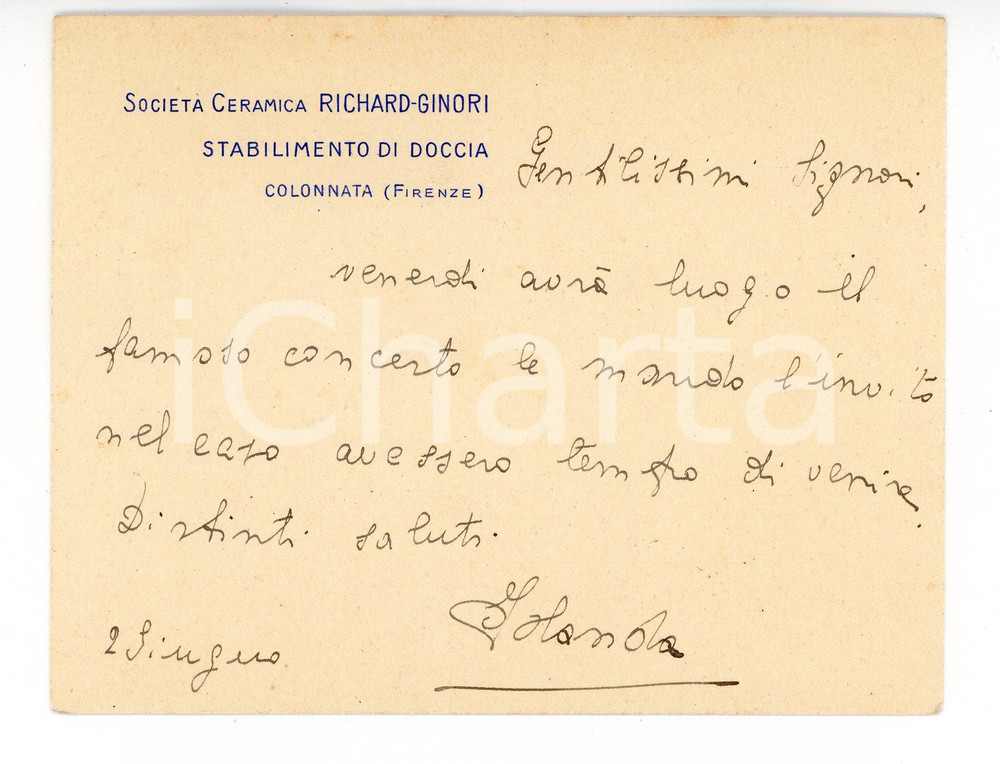 SOCIETÀ CERAMICA RICHARD-GINORI
STABILIMENTO DI DOCCIA
COLONNATA (FIRENZE)
Gentilissimi Signori,
venerdi avrà luogo il
famoso concerto le mando l'invito
nel caso avessero tempo di venire.
Distinti saluti.
Iolanda
2 Giugno
iCharta